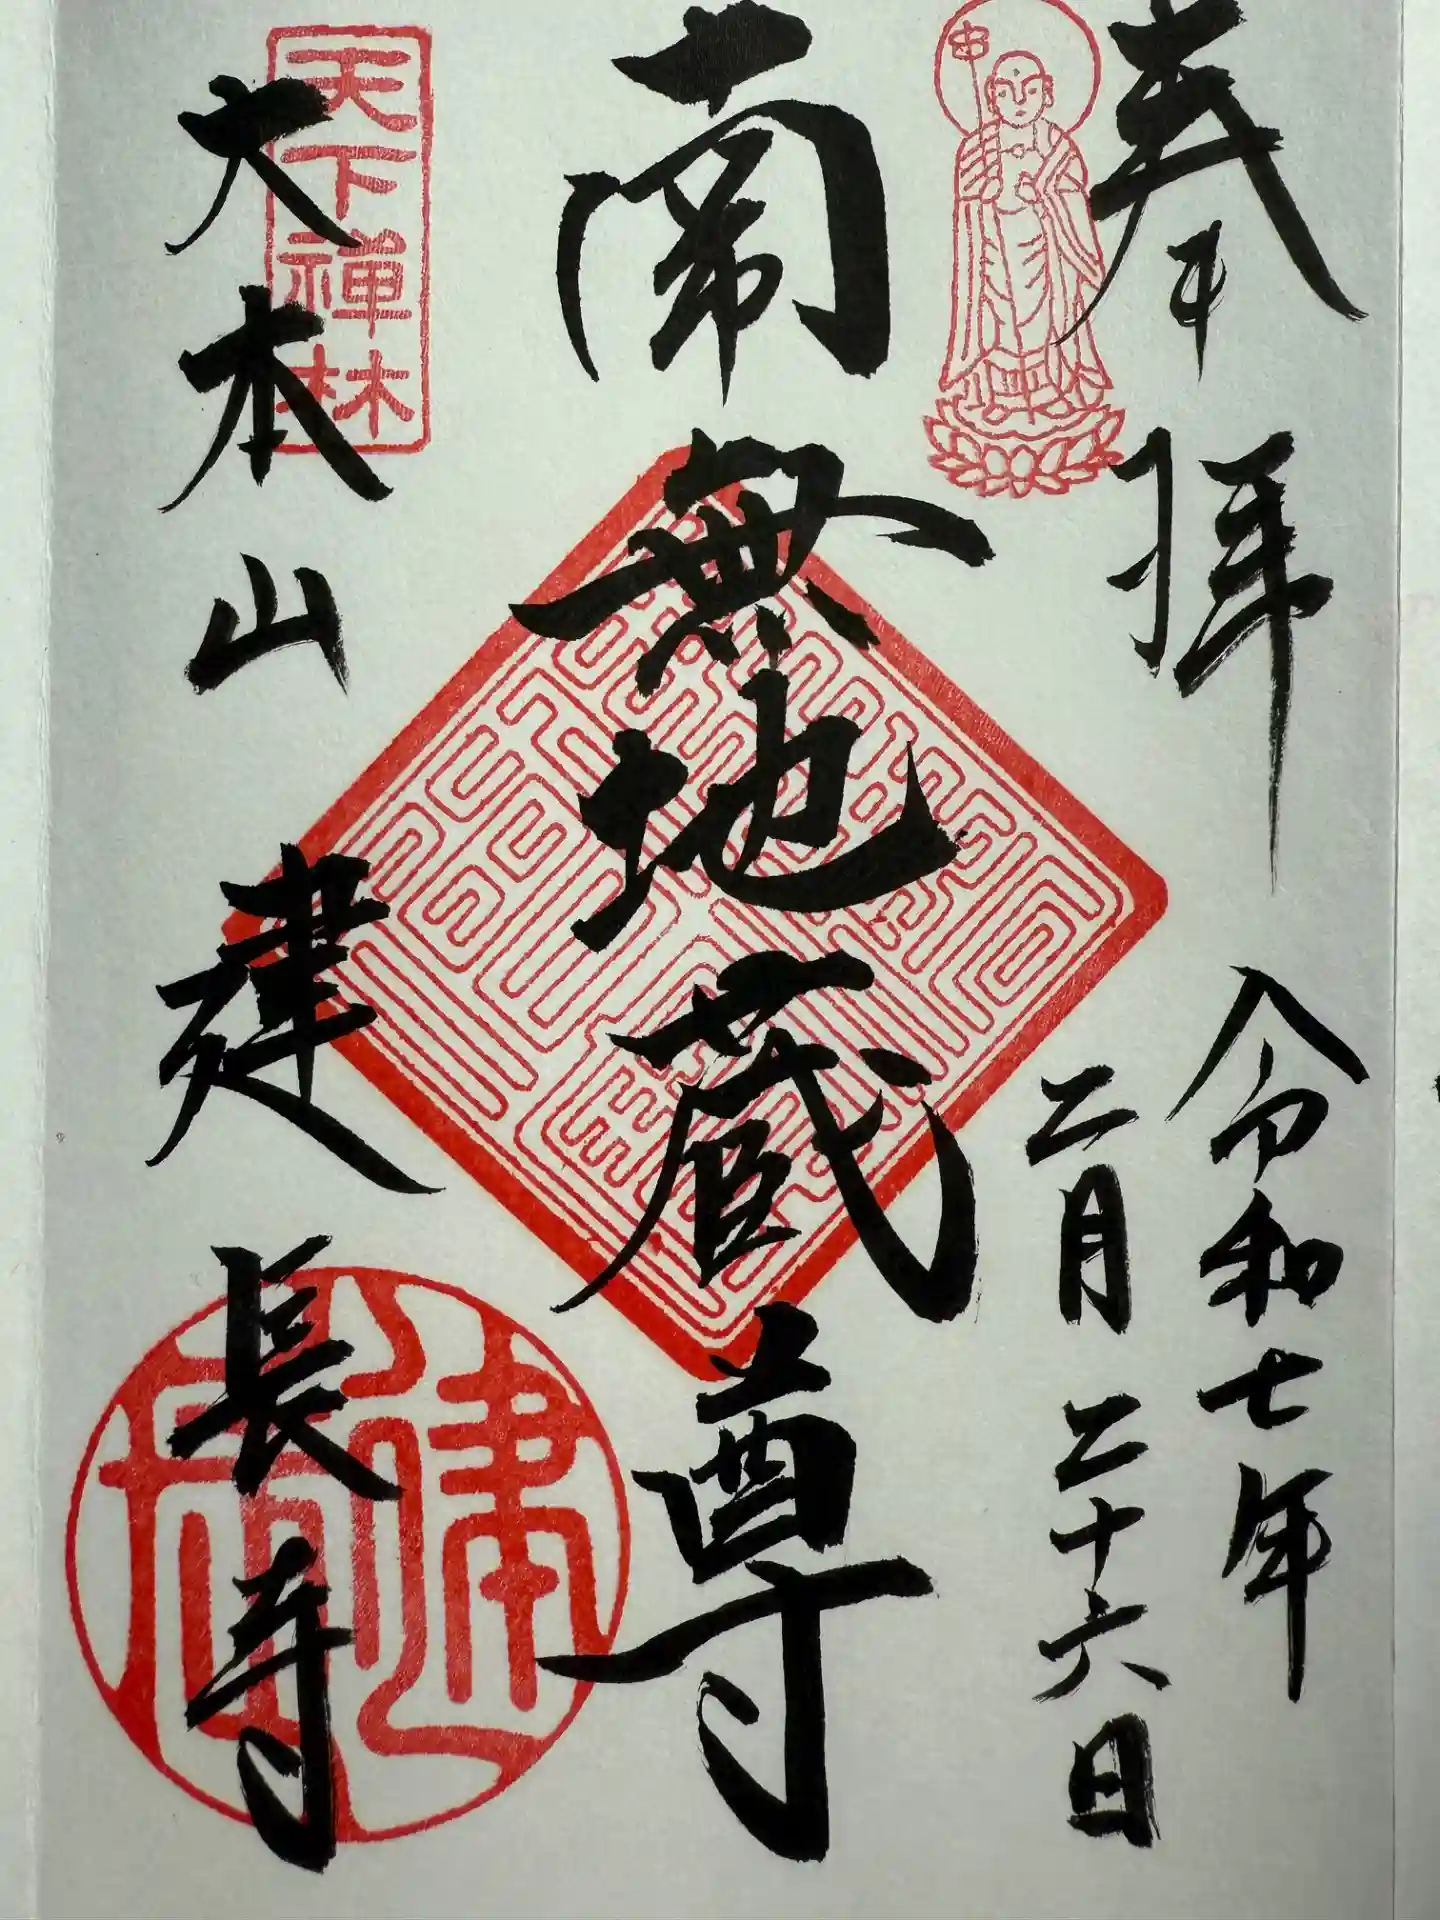 奉拝
令和七年
二月二十六日
南無地蔵尊
天下禅林
大本山建長寺